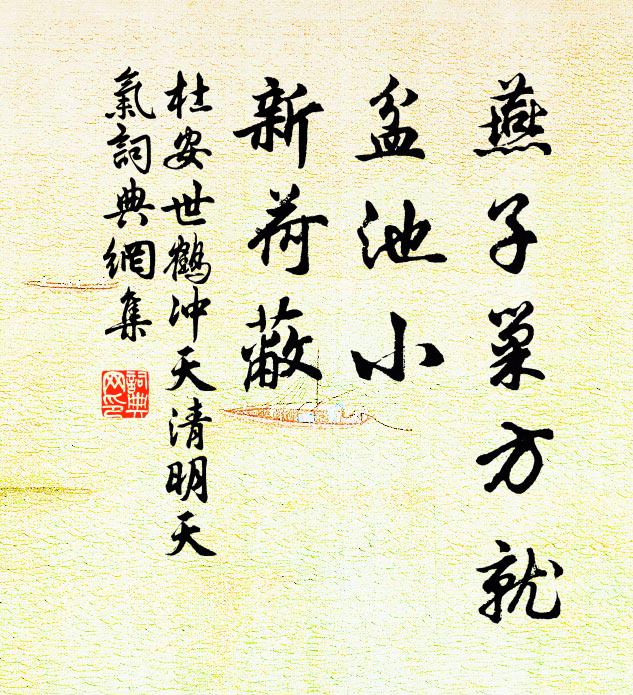 燕子巢方就
盆池小
新荷蔽
杜安世鶴冲天清明天
氣詞典網集
詞典网印